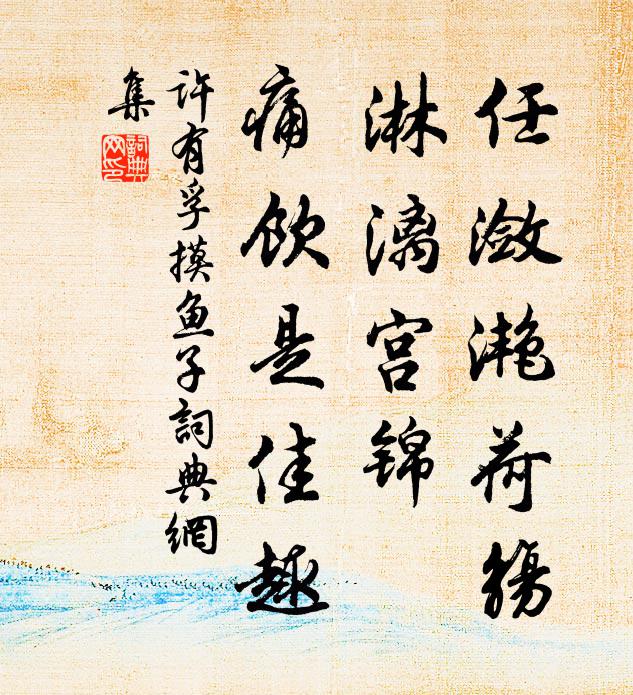 任潋滟荷觞
淋漓宫锦
痛饮是佳趣
许有孚摸鱼子詞典網
集
詞典
网印